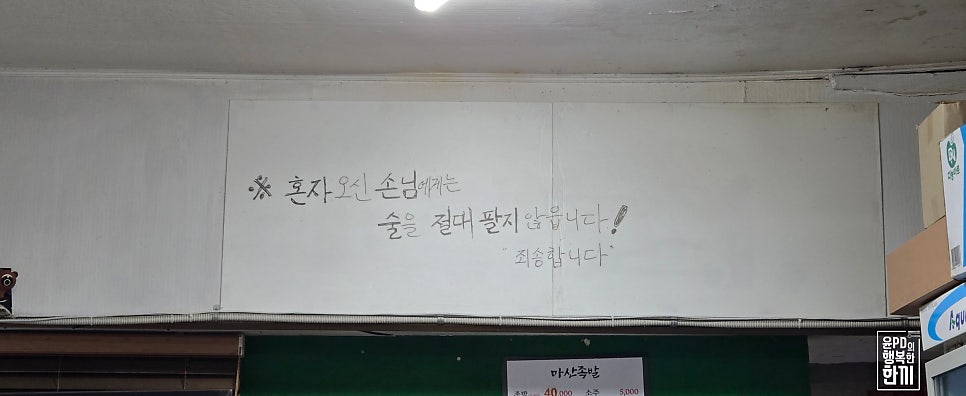 ※ 혼자 오신 손님에게는
술을 절대 팔지 않읍니다!
"죄송합니다"
마산족발
족발 40,000 소주 5,000
Aqu
윤PD의
행복한
한끼